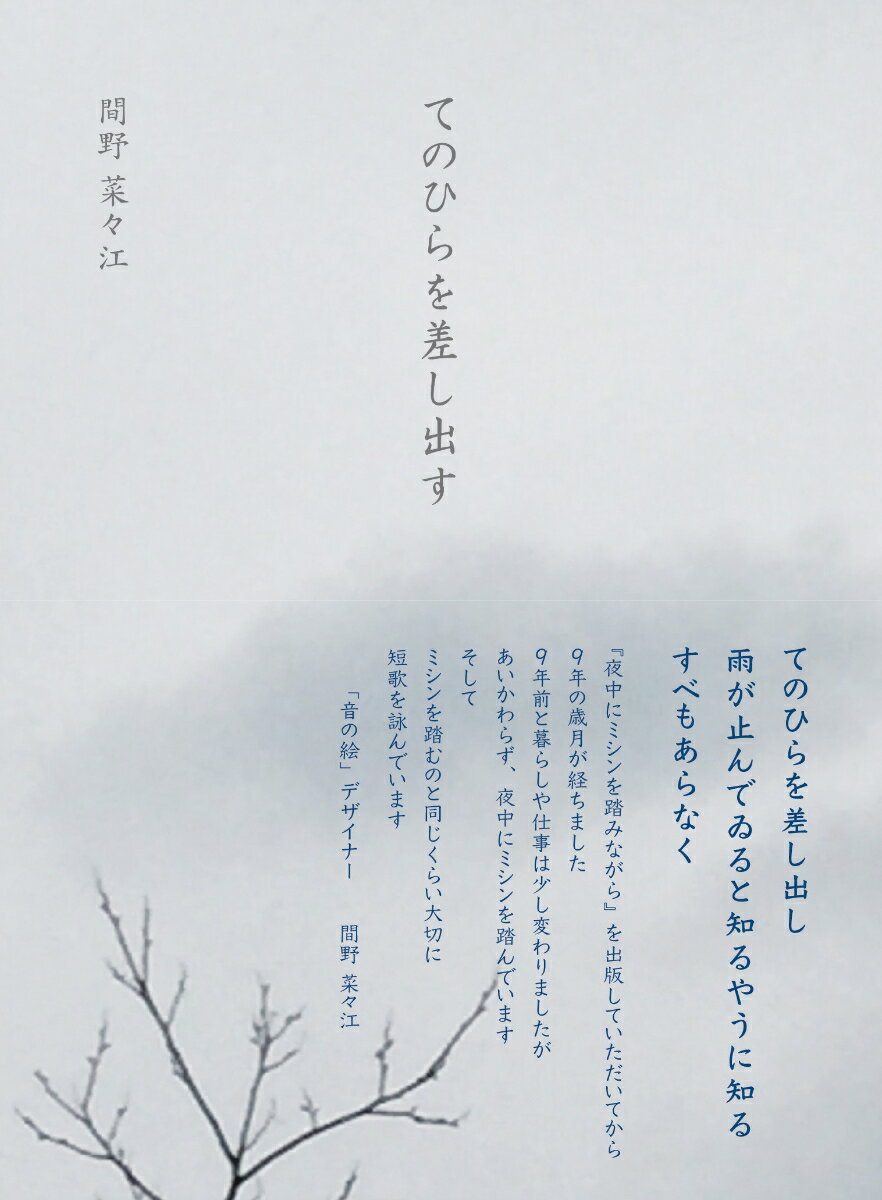 てのひらを差し出す
間野 菜々江
てのひらを差し出し
雨が止んでゐると知るやうに知る
すべもあらなく
『夜中にミシンを踏みながら』を出版していただいてから
9年の歳月が経ちました
9年前と暮らしや仕事は少し変わりましたが
あいかわらず、夜中にミシンを踏んでいます
そして
ミシンを踏むのと同じくらい大切に
短歌を詠んでいます
「音の絵」デザイナー 間野 菜々江